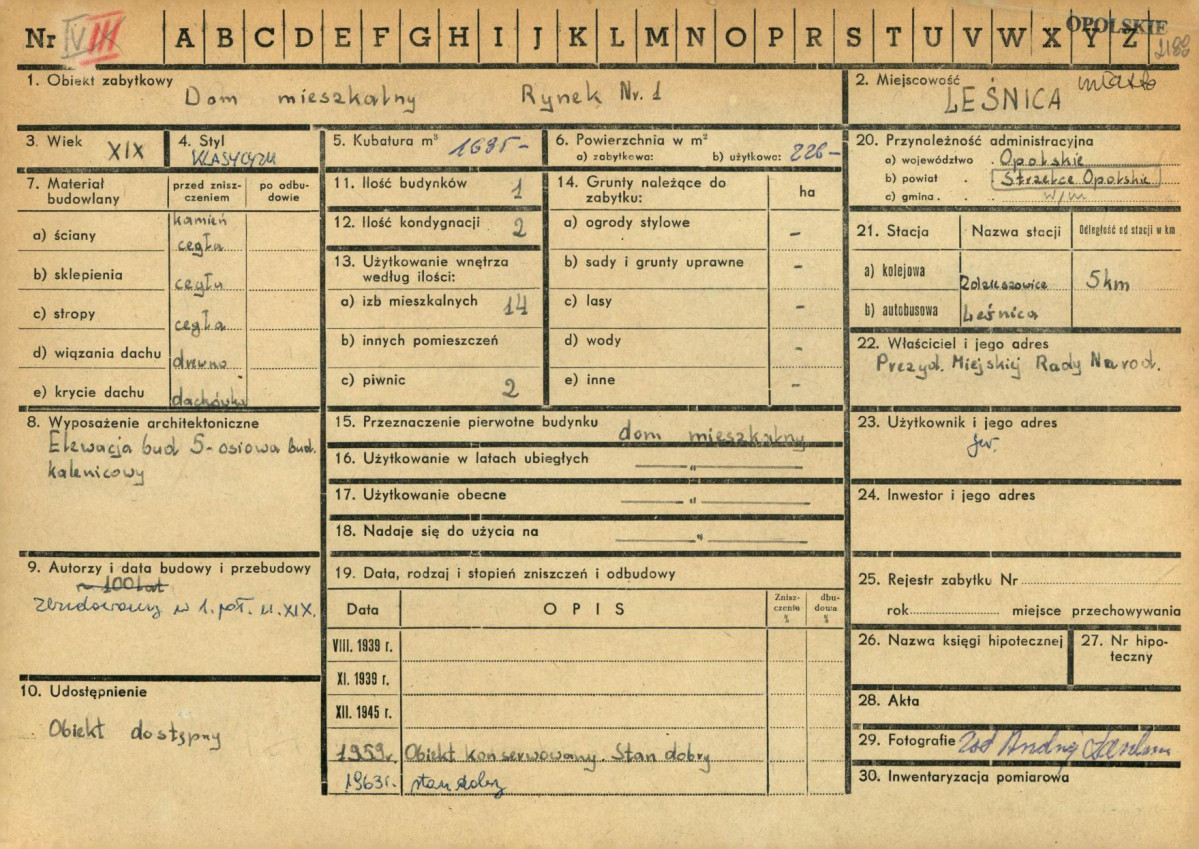 Nr IV III A B C D E F G H I J K L M N O P R S T U V W X Y Z
OPOLSKIE
1. Obiekt zabytkowy
Dom mieszkalny Rynek Nr. 1
2. Miejscowość
LEŚNICA miasto
3. Wiek
XIX
4. Styl
KLASYCYZM
5. Kubatura m³ 1695-
6. Powierzchnia w m²
a) zabytkowa: b) użytkowa: 226-
7. Materiał budowlany
przed zniszczeniem
po odbudowie
a) ściany
kamień
cegła
b) sklepienia
cegła
c) stropy
cegła
d) wiązania dachu
drewno
e) krycie dachu
dachówka
8. Wyposażenie architektoniczne
Elewacja bud 5-osiowa bud.
kalenicowy
9. Autorzy i data budowy i przebudowy
~ 100 lat
zbudowany w 1. poł. w. XIX.
10. Udostępnienie
Obiekt dostępny
11. Ilość budynków 1
12. Ilość kondygnacji 2
13. Użytkowanie wnętrza
według ilości:
a) izb mieszkalnych 14
b) innych pomieszczeń
c) piwnic 2
14. Grunty należące do
zabytku:
ha
a) ogrody stylowe -
b) sady i grunty uprawne -
c) lasy -
d) wody -
e) inne -
15. Przeznaczenie pierwotne budynku dom mieszkalny
16. Użytkowanie w latach ubiegłych — " —
17. Użytkowanie obecne — " —
18. Nadaje się do użycia na — " —
19. Data, rodzaj i stopień zniszczeń i odbudowy
Data
OPIS
Zniszczenia %
dbudowa %
VIII. 1939 r.
XI. 1939 r.
XII. 1945 r.
1959r. Obiekt konserwowany. Stan dobry
1963r. stan dobry
20. Przynależność administracyjna
a) województwo . Opolskie
b) powiat . Strzelce Opolskie
c) gmina . w/m
21. Stacja
Nazwa stacji
Odległość od stacji w km
a) kolejowa
5km
b) autobusowa Leśnica
22. Właściciel i jego adres
Prezyd. Miejskiej Rady Narod.
23. Użytkownik i jego adres
24. Inwestor i jego adres
25. Rejestr zabytku Nr
rok miejsce przechowywania
26. Nazwa księgi hipotecznej
27. Nr hipoteczny
28. Akta
29. Fotografie
30. Inwentaryzacja pomiarowa